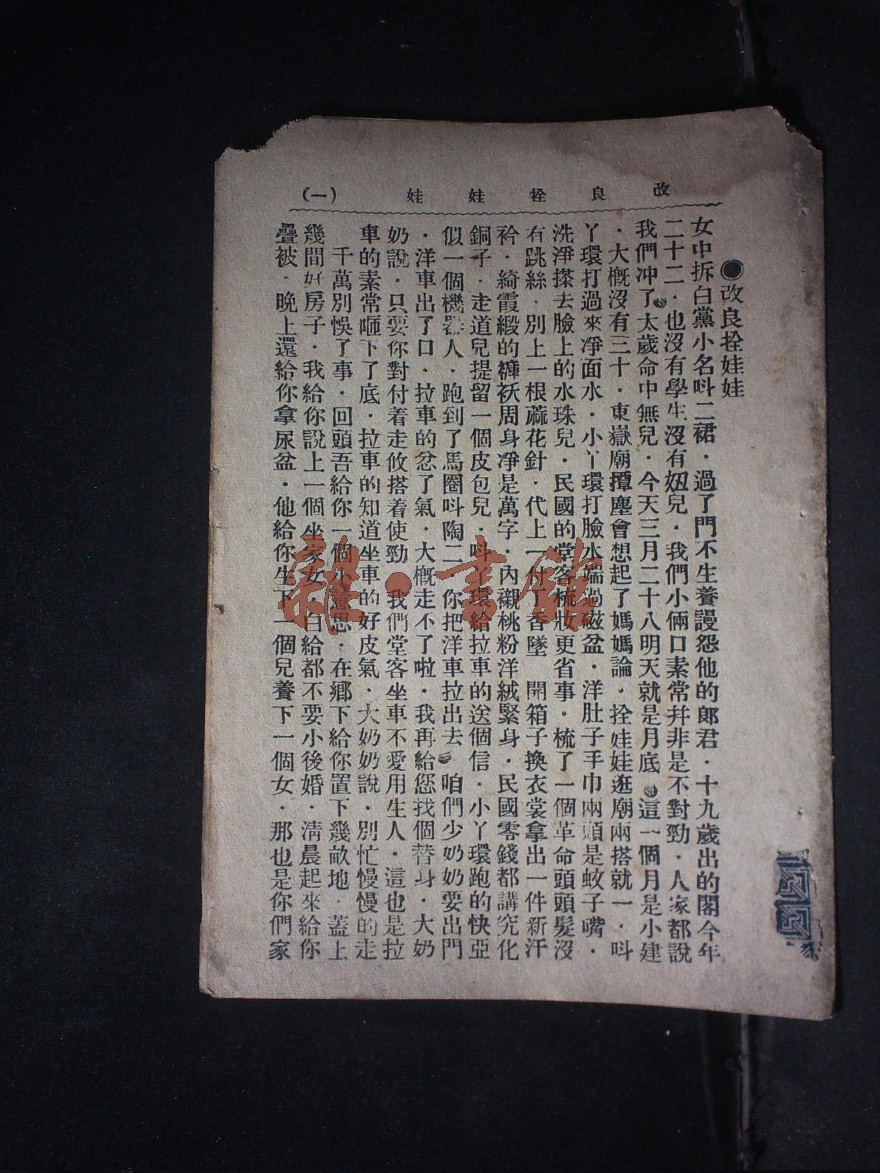 改良拴娃娃 (一)
●改良拴娃娃
女中拆白黨小名呌二裙．過了門不生養謾怨他的郎君．十九歲出的閣今年
二十二．也沒有學生沒有妞兒．我們小倆口素常并非是不對勁．人家都說
我們冲了太歲命中無兒．今天三月二十八明天就是月底 這一個月是小建
．大概沒有三十．東嶽廟撢塵會想起了媽媽論．拴娃娃逛廟兩搭就一．呌
丫環打過來凈面水．小丫環打臉水端過磁盆．洋肚子手巾兩頭是蚊子嘴．
洗淨搽去臉上的水珠兒．民國的堂客梳妝更省事．梳了一個革命頭頭髮沒
有跳絲．別上一根蔴花針．代上一付 香墜 開箱子換衣裳拿出一件新汗
衿．綺霞緞的褲袄周身凈是萬字．內襯桃粉洋絨緊身．民國零錢都講究化
銅子．走道兒提留一個皮包兒．呌丫環給拉車的送個信．小丫環跑的快亞
似一個機器人．跑到了馬圈呌陶二．你把洋車拉出去 咱們少奶奶要出門
．洋車出了口．拉車的忿了氣．大概走不了啦．我再給您找個替身．大奶
奶說．只要你對付着走攸搭着使勁 我們堂客坐車不愛用生人．這也是拉
車的素常砸下了底．拉車的知道坐車的好皮氣．大奶奶說．別忙慢慢的走
千萬別悞了事．回頭吾給你一個小意思．在鄉下給你置下幾畝地．蓋上
幾間好房子．我給你說上一個坐家女．白給都不要小後婚．清晨起來給你
疊被．晚上還給你拿尿盆．他給你生下一個兒養下一個女．那也是你們家
雜·書館